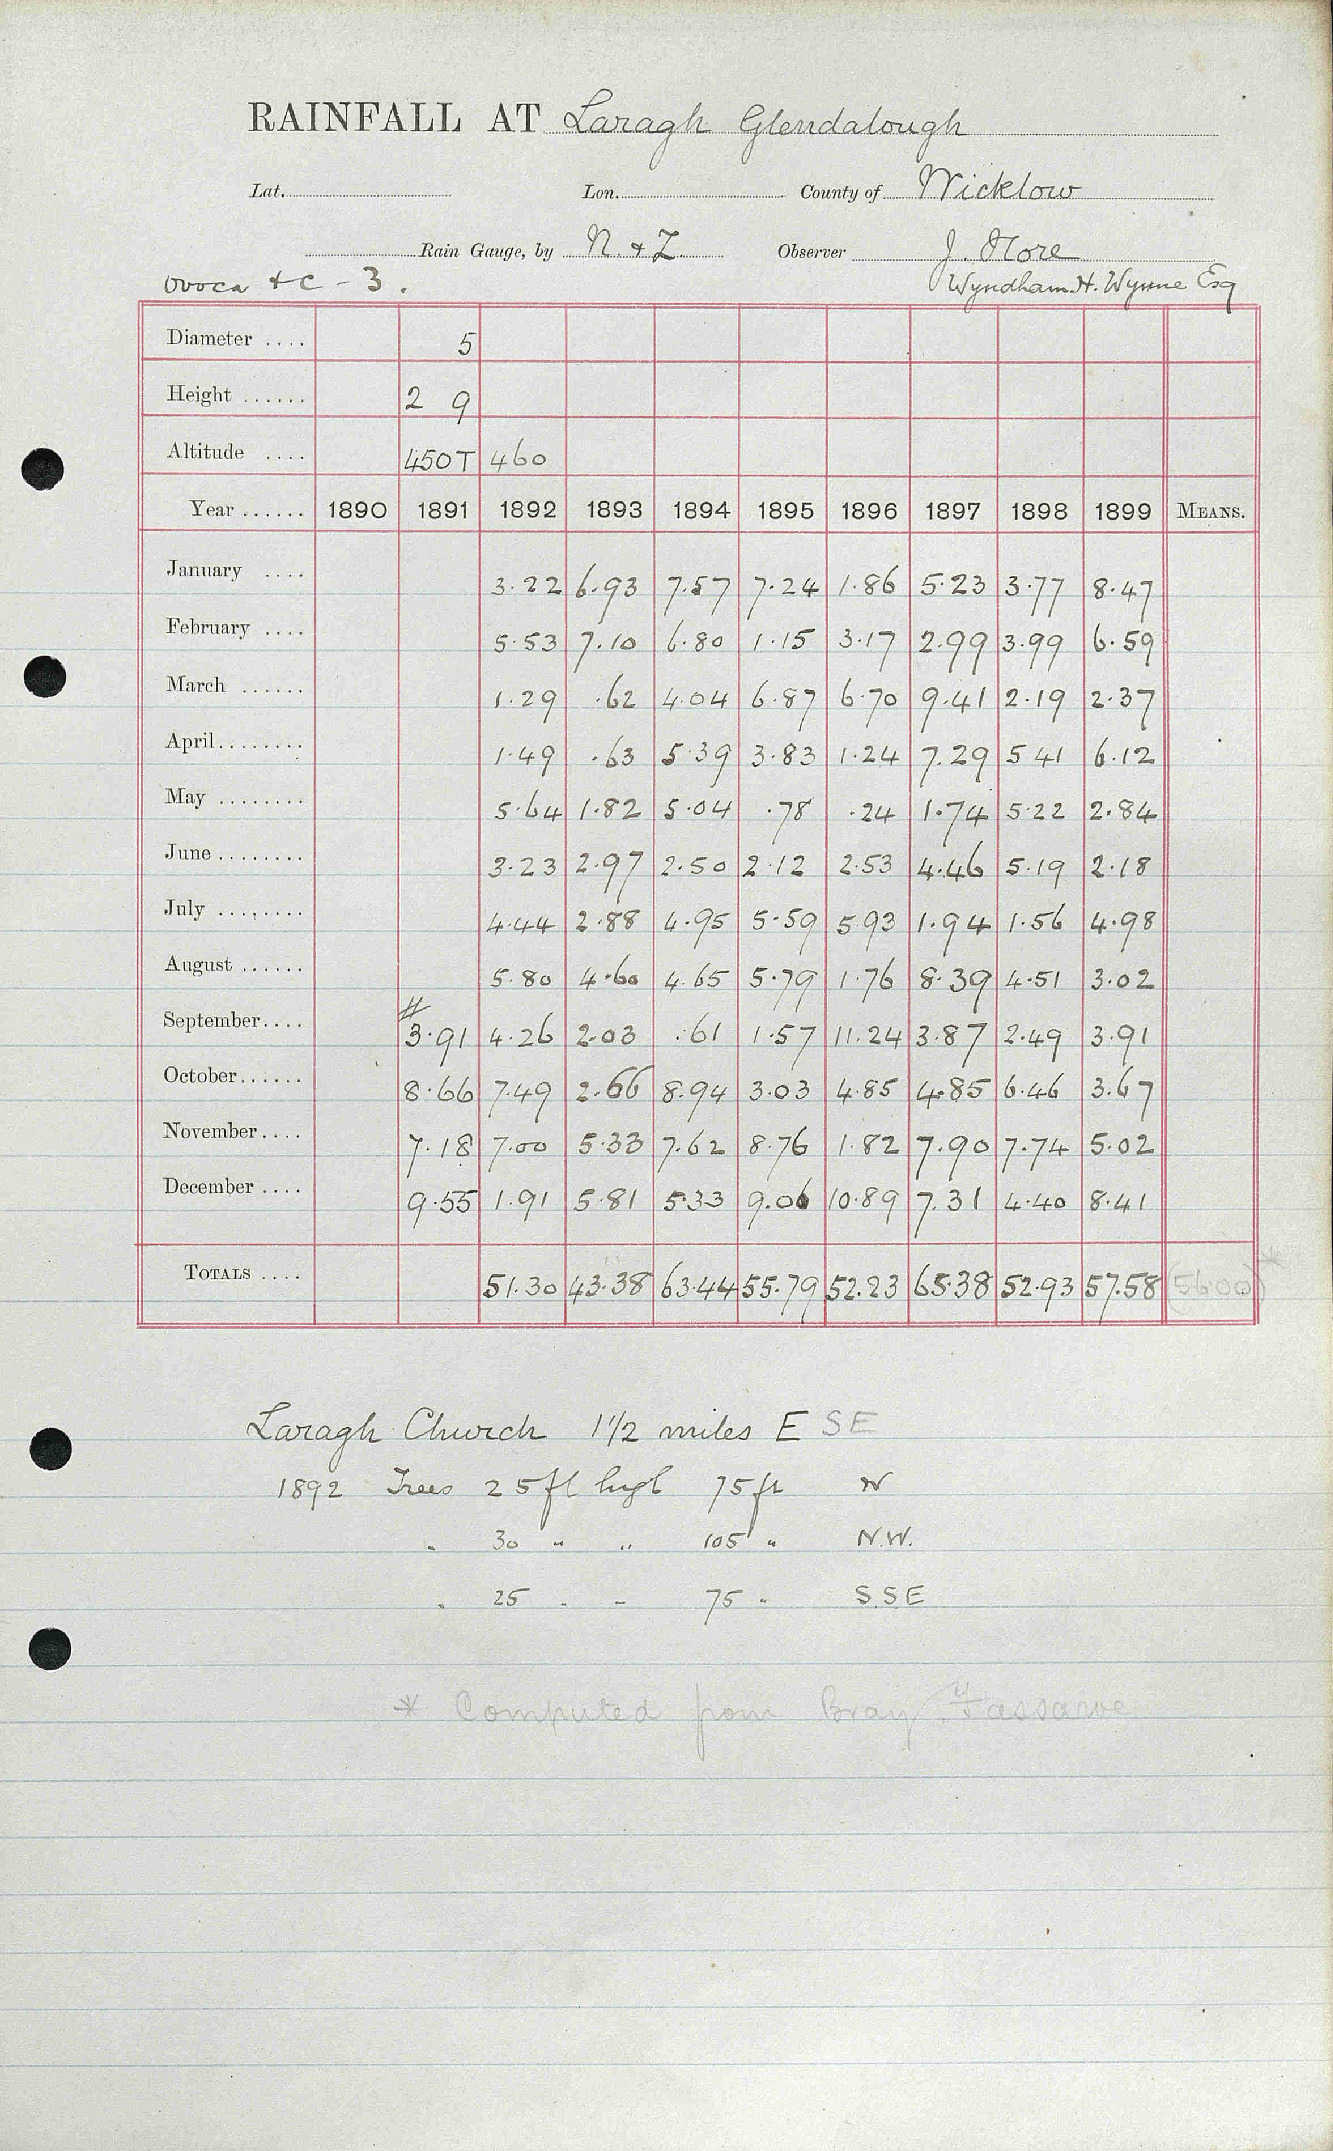 RAINFALL AT Laragh Glendalough
Lat. Lon. County of Wicklow
Rain Gauge, by N. & Z. Observer J. Hore
Ovoca &c - 3. Wyndham H. Wynne Esq
Diameter .... 5
Height ...... 2 9
Altitude .... 450T 460
Year ...... 1890 1891 1892 1893 1894 1895 1896 1897 1898 1899 MEANS.
January .... 3.22 6.93 7.57 7.24 1.86 5.23 3.77 8.47
February .... 5.53 7.10 6.80 1.15 3.17 2.99 3.99 6.59
March ...... 1.29 .62 4.04 6.87 6.70 9.41 2.19 2.37
April........ 1.49 .63 5.39 3.83 1.24 7.29 5 41 6.12
May ........ 5.64 1.82 5.04 .78 .24 1.74 5.22 2.84
June........ 3.23 2.97 2.50 2.12 2.53 4.46 5.19 2.18
July ........ 4.44 2.88 4.95 5.59 5.93 1.94 1.56 4.98
August ...... 5.80 4.60 4.65 5.79 1.76 8.39 4.51 3.02
#
September.... 3.91 4.26 2.03 .61 1.57 11.24 3.87 2.49 3.91
October...... 8.66 7.49 2.66 8.94 3.03 4.85 4.85 6.46 3.67
November.... 7.18 7.00 5.33 7.62 8.76 1.82 7.90 7.74 5.02
December .... 9.55 1.91 5.81 5.33 9.06 10.89 7.31 4.40 8.41
TOTALS .... 51.30 43.38 63.44 55.79 52.23 65.38 52.93 57.58 (56.00)*
Laragh Church 1 1/2 miles E SE
1892 Trees 25 ft high 75 ft N
" 30 " " 105 " N.W.
" 25 " " 75 " S.S.E
* Computed from Bray, Fassaroe